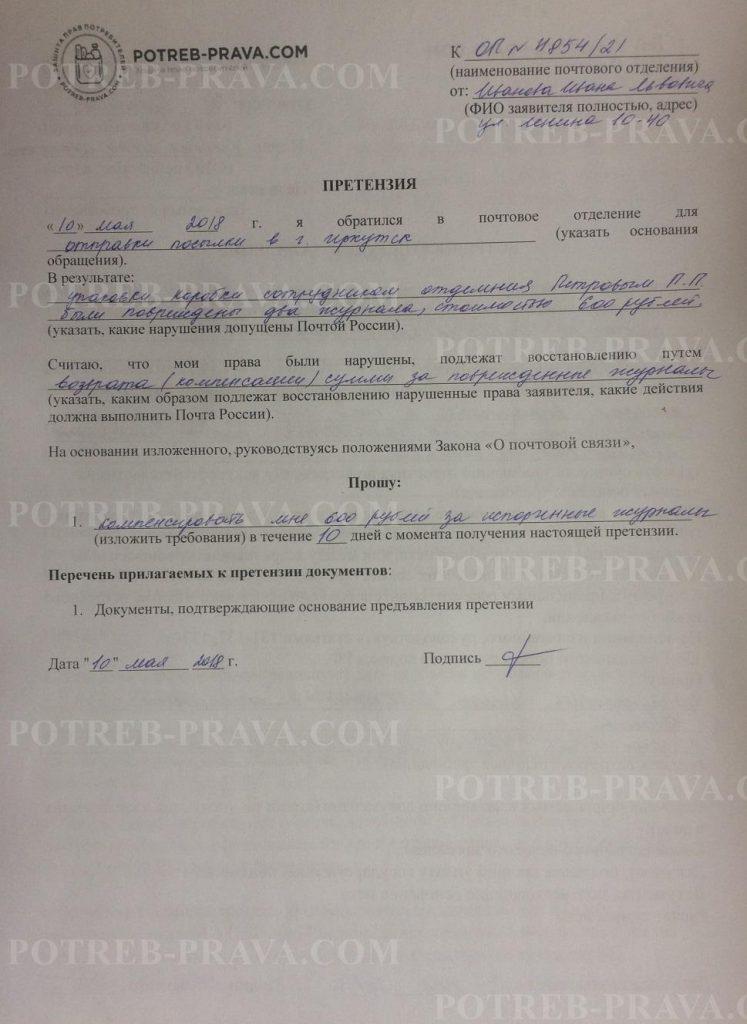 ЗАЩИТА ПРАВ ПОТРЕБИТЕЛЕЙ
POTREB-PRAVA.COM
POTREB-PRAVA.COM
К ОП № 4854/21
(наименование почтового отделения)
от: Иванова Ивана Львовича
(ФИО заявителя полностью, адрес)
ул Ленина 10-40
POTREB-PRAVA.COM
POTREB-PRAVA.CO
ПРЕТЕНЗИЯ
«10» мая 2018 г. я обратился в почтовое отделение для
отправки посылки в г. Иркутск (указать основания
обращения).
В результате:
упаковки коробки сотрудником отделения Петровым П.П.
были повреждены два журнала, стоимостью 600 рублей.
(указать, какие нарушения допущены Почтой России).
POTREB-PRAVA.COM
POTREB-PRAVA.CO
Считаю, что мои права были нарушены, подлежат восстановлению путем
возврата (компенсации) суммы за поврежденные журналы
(указать, каким образом подлежат восстановлению нарушенные права заявителя, какие действия
должна выполнить Почта России).
На основании изложенного, руководствуясь положениями Закона «О почтовой связи»,
Прошу:
1. компенсировать мне 600 рублей за испорченные журналы
(изложить требования) в течение 10 дней с момента получения настоящей претензии.
POTREB-PRAVA.COM
POTREB-PRAVA.CO
Перечень прилагаемых к претензии документов:
1. Документы, подтверждающие основание предъявления претензии
Дата "10" мая 2018 г. Подпись
POTREB-PRAVA.COM
POTREB-PRAVA.CO
POTREB-PRAVA.COM
POTREB-PRAVA.CO